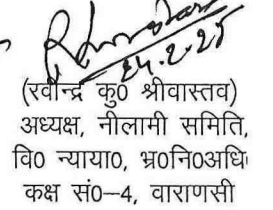 24.2.25
(रवीन्द्र कु0 श्रीवास्तव)
अध्यक्ष, नीलामी समिति,
वि0 न्याया0, भ्र0नि0अधि
कक्ष सं0–4, वाराणसी